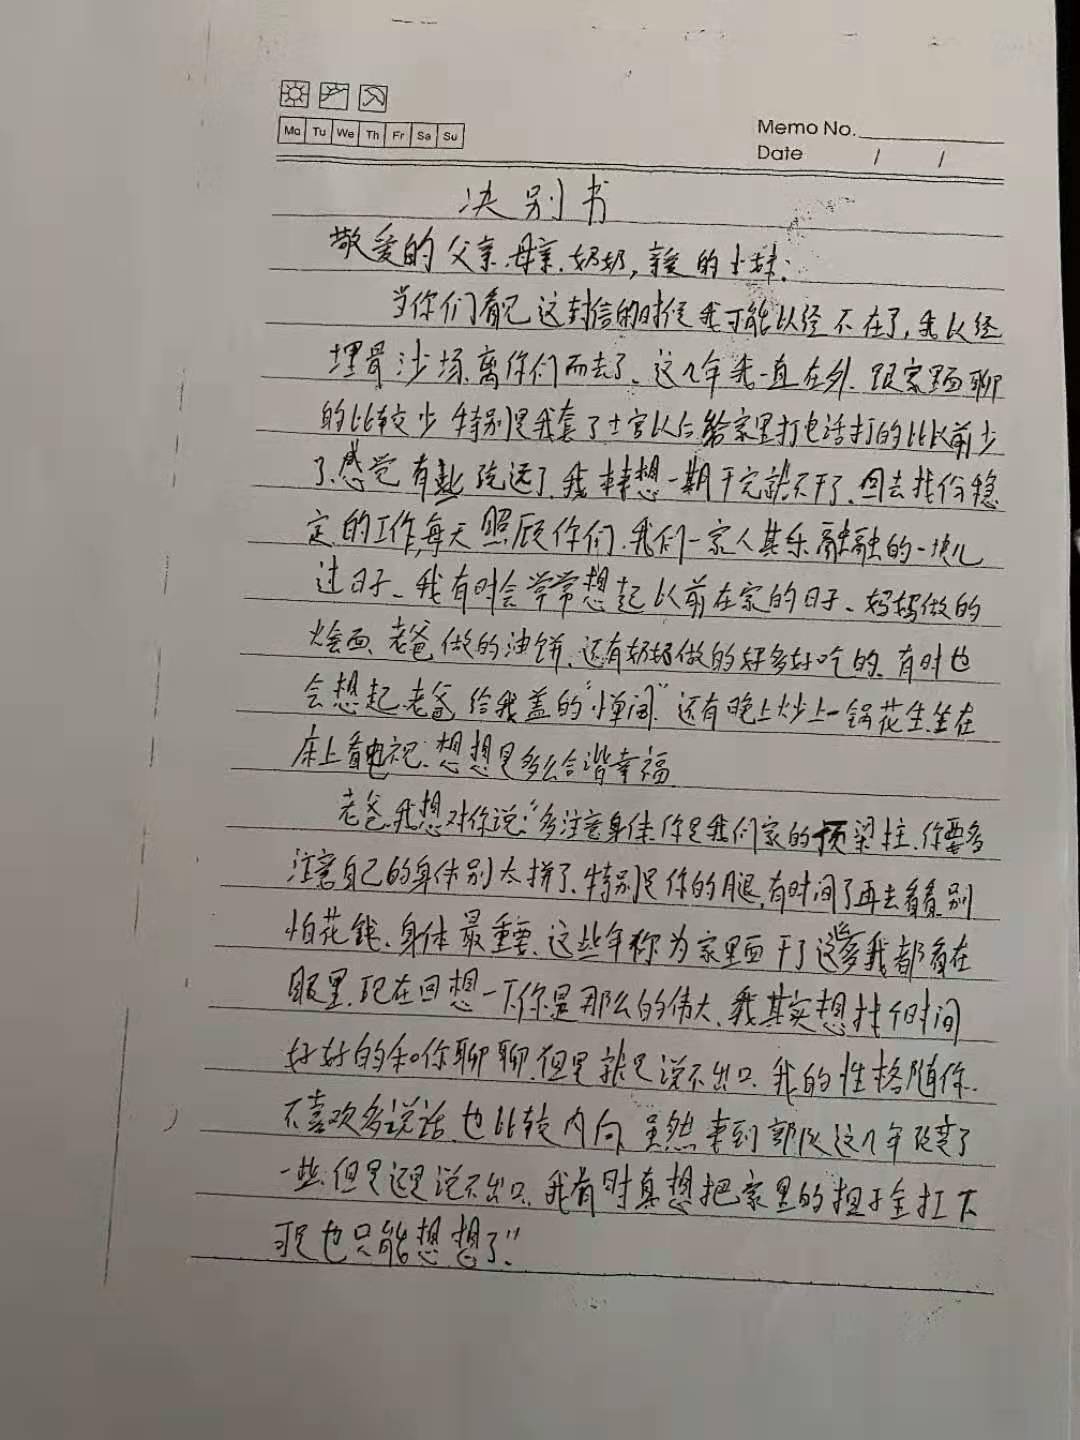 Mo Tu We Th Fr Sa Su
Memo No.
Date / /
决别书
敬爱的父亲、母亲、奶奶,亲爱的小妹:
当你们看见这封信的时候我可能以经不在了,我以经
埋骨沙场,离你们而去了、这几年我一直在外、跟家里面聊
的比较少 特别是我套了士官以后给家里打电话打的比以前少
了、感觉有些疏远了、我本来想一期干完就不干了、回去找份稳
定的工作,每天照顾你们、我们一家人其乐融融的一块儿
过日子、我有时会常常想起以前在家的日子、妈妈做的
烩面、老爸做的油饼、还有奶奶做的好多好吃的、有时也
会想起老爸给我盖的“小单间”还有晚上炒上一锅花生坐在
床上看电视、想想是多么合谐幸福
老爸我想对你说:“多注意身体你是我们家的顶梁柱、你要多
注意自己的身体别太拼了、特别是你的腿,有时间了再去看看别
怕花钱、身体最重要、这些年你为家里面干了这些多我都看在
眼里、现在回想一下你是那么的伟大、我其实想找个时间
好好的和你聊聊、但是就是说不出口、我的性格随你、
不喜欢多说话、也比较内向、虽然来到部队这几年改变了
一些但是还是说不出口、我有时真想把家里的担子全扛下
可是也只能想想了”